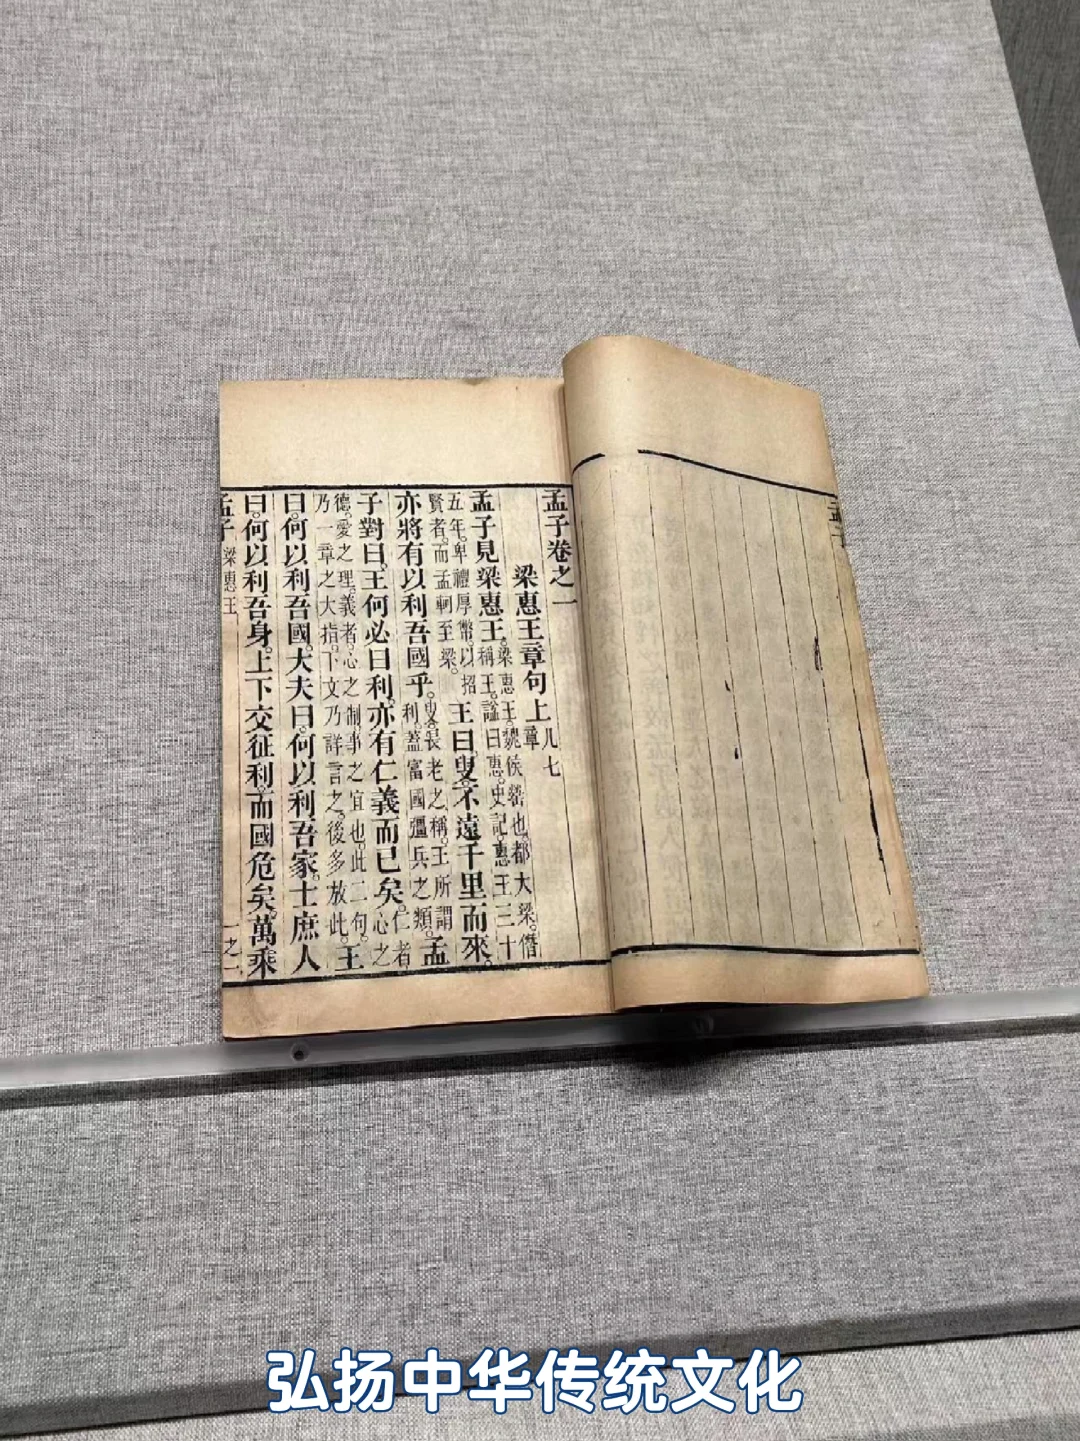 孟子卷之一
梁惠王章句上凡七章
孟子見梁惠王。梁惠王。魏侯罃也。都大梁。僭
稱王。諡曰惠。史記。惠王三十
五年。卑禮厚幣。以招
賢者。而孟軻至梁。王曰。叟。不遠千里而來。
亦將有以利吾國乎。叟。長老之稱。王所謂
利。蓋富國彊兵之類。孟
子對曰。王何必曰利。亦有仁義而已矣。仁者
心之
德。愛之理。義者。心之制。事之宜也。此二句。
乃一章之大指。下文乃詳言之。後多放此。王
曰。何以利吾國。大夫曰。何以利吾家。士庶人
曰。何以利吾身。上下交征利。而國危矣。萬乘
孟子 梁惠王 一之一
弘扬中华传统文化